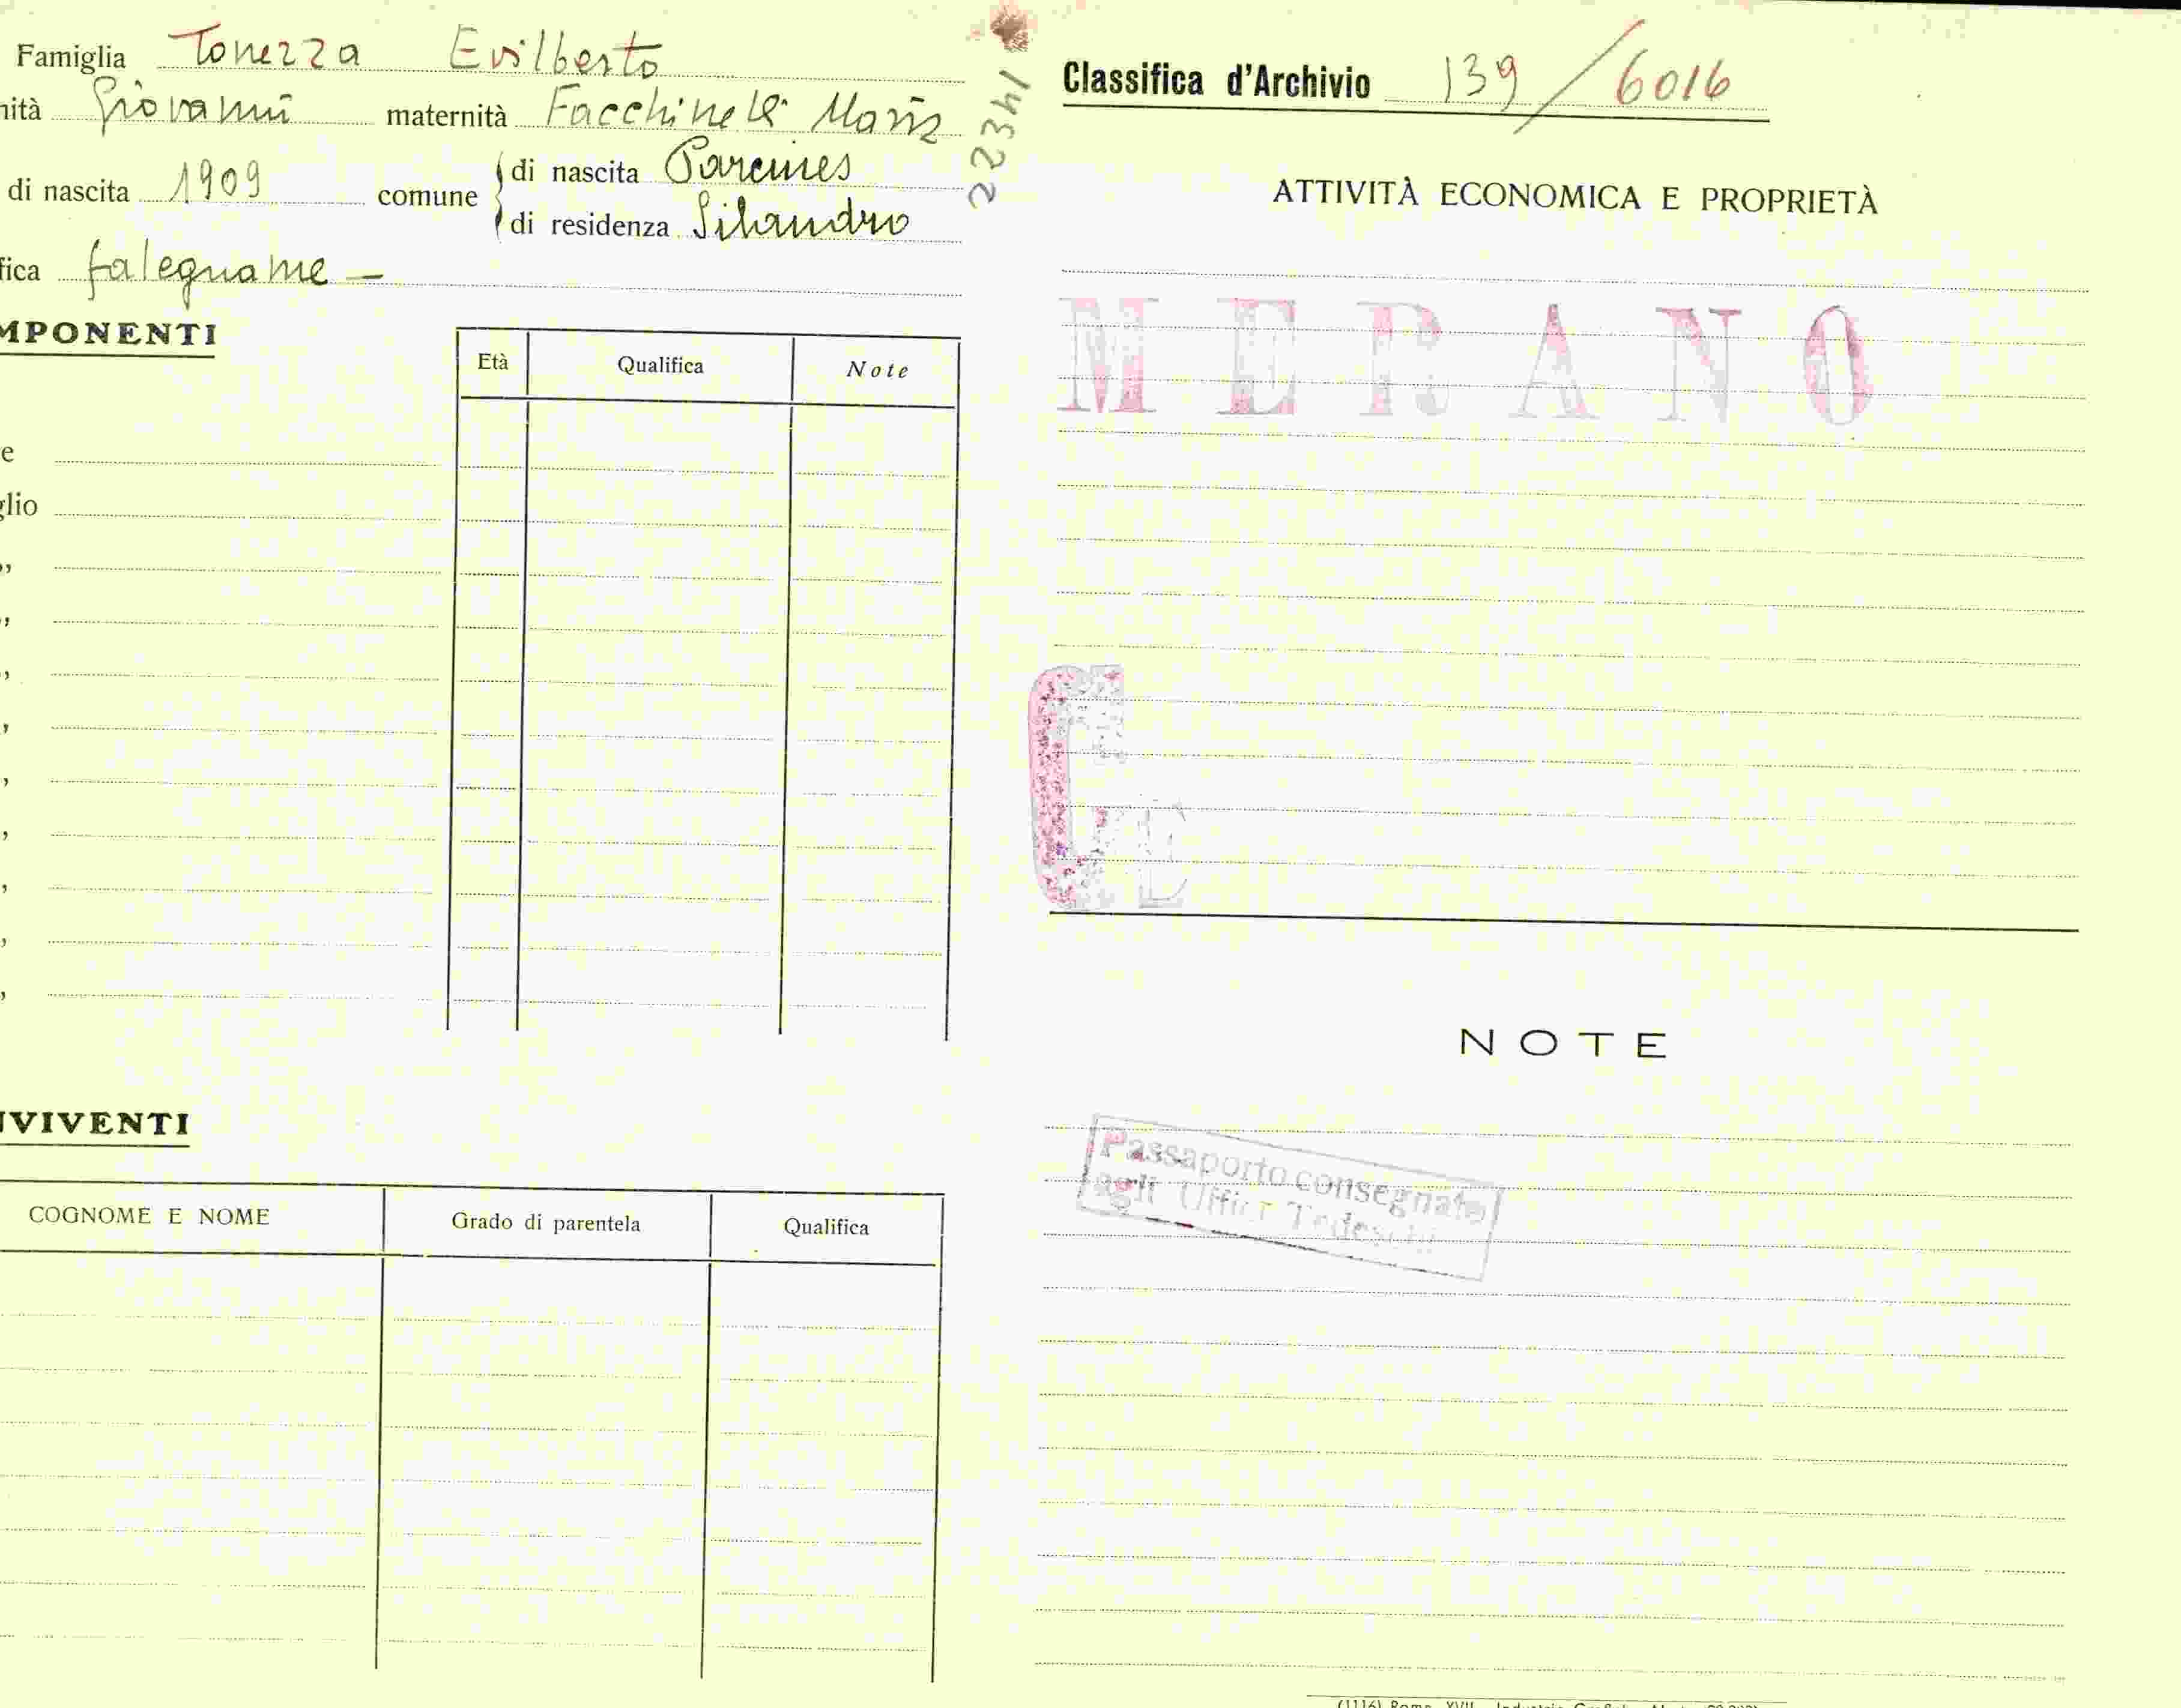 Famiglia Tonezza Evilberto
nità Giovanni maternità Facchinelli Maria
di nascita 1909 comune di nascita Parcines
di residenza Silandro
fica falegname –
MPONENTI
Età Qualifica Note
e
glio
„
VIVENTI
COGNOME E NOME Grado di parentela Qualifica
22341
Classifica d'Archivio 139/6016
ATTIVITÀ ECONOMICA E PROPRIETÀ
MERANO
NOTE
Passaporto consegnato
agli Uffici Tedeschi
(1116) Roma, XVII